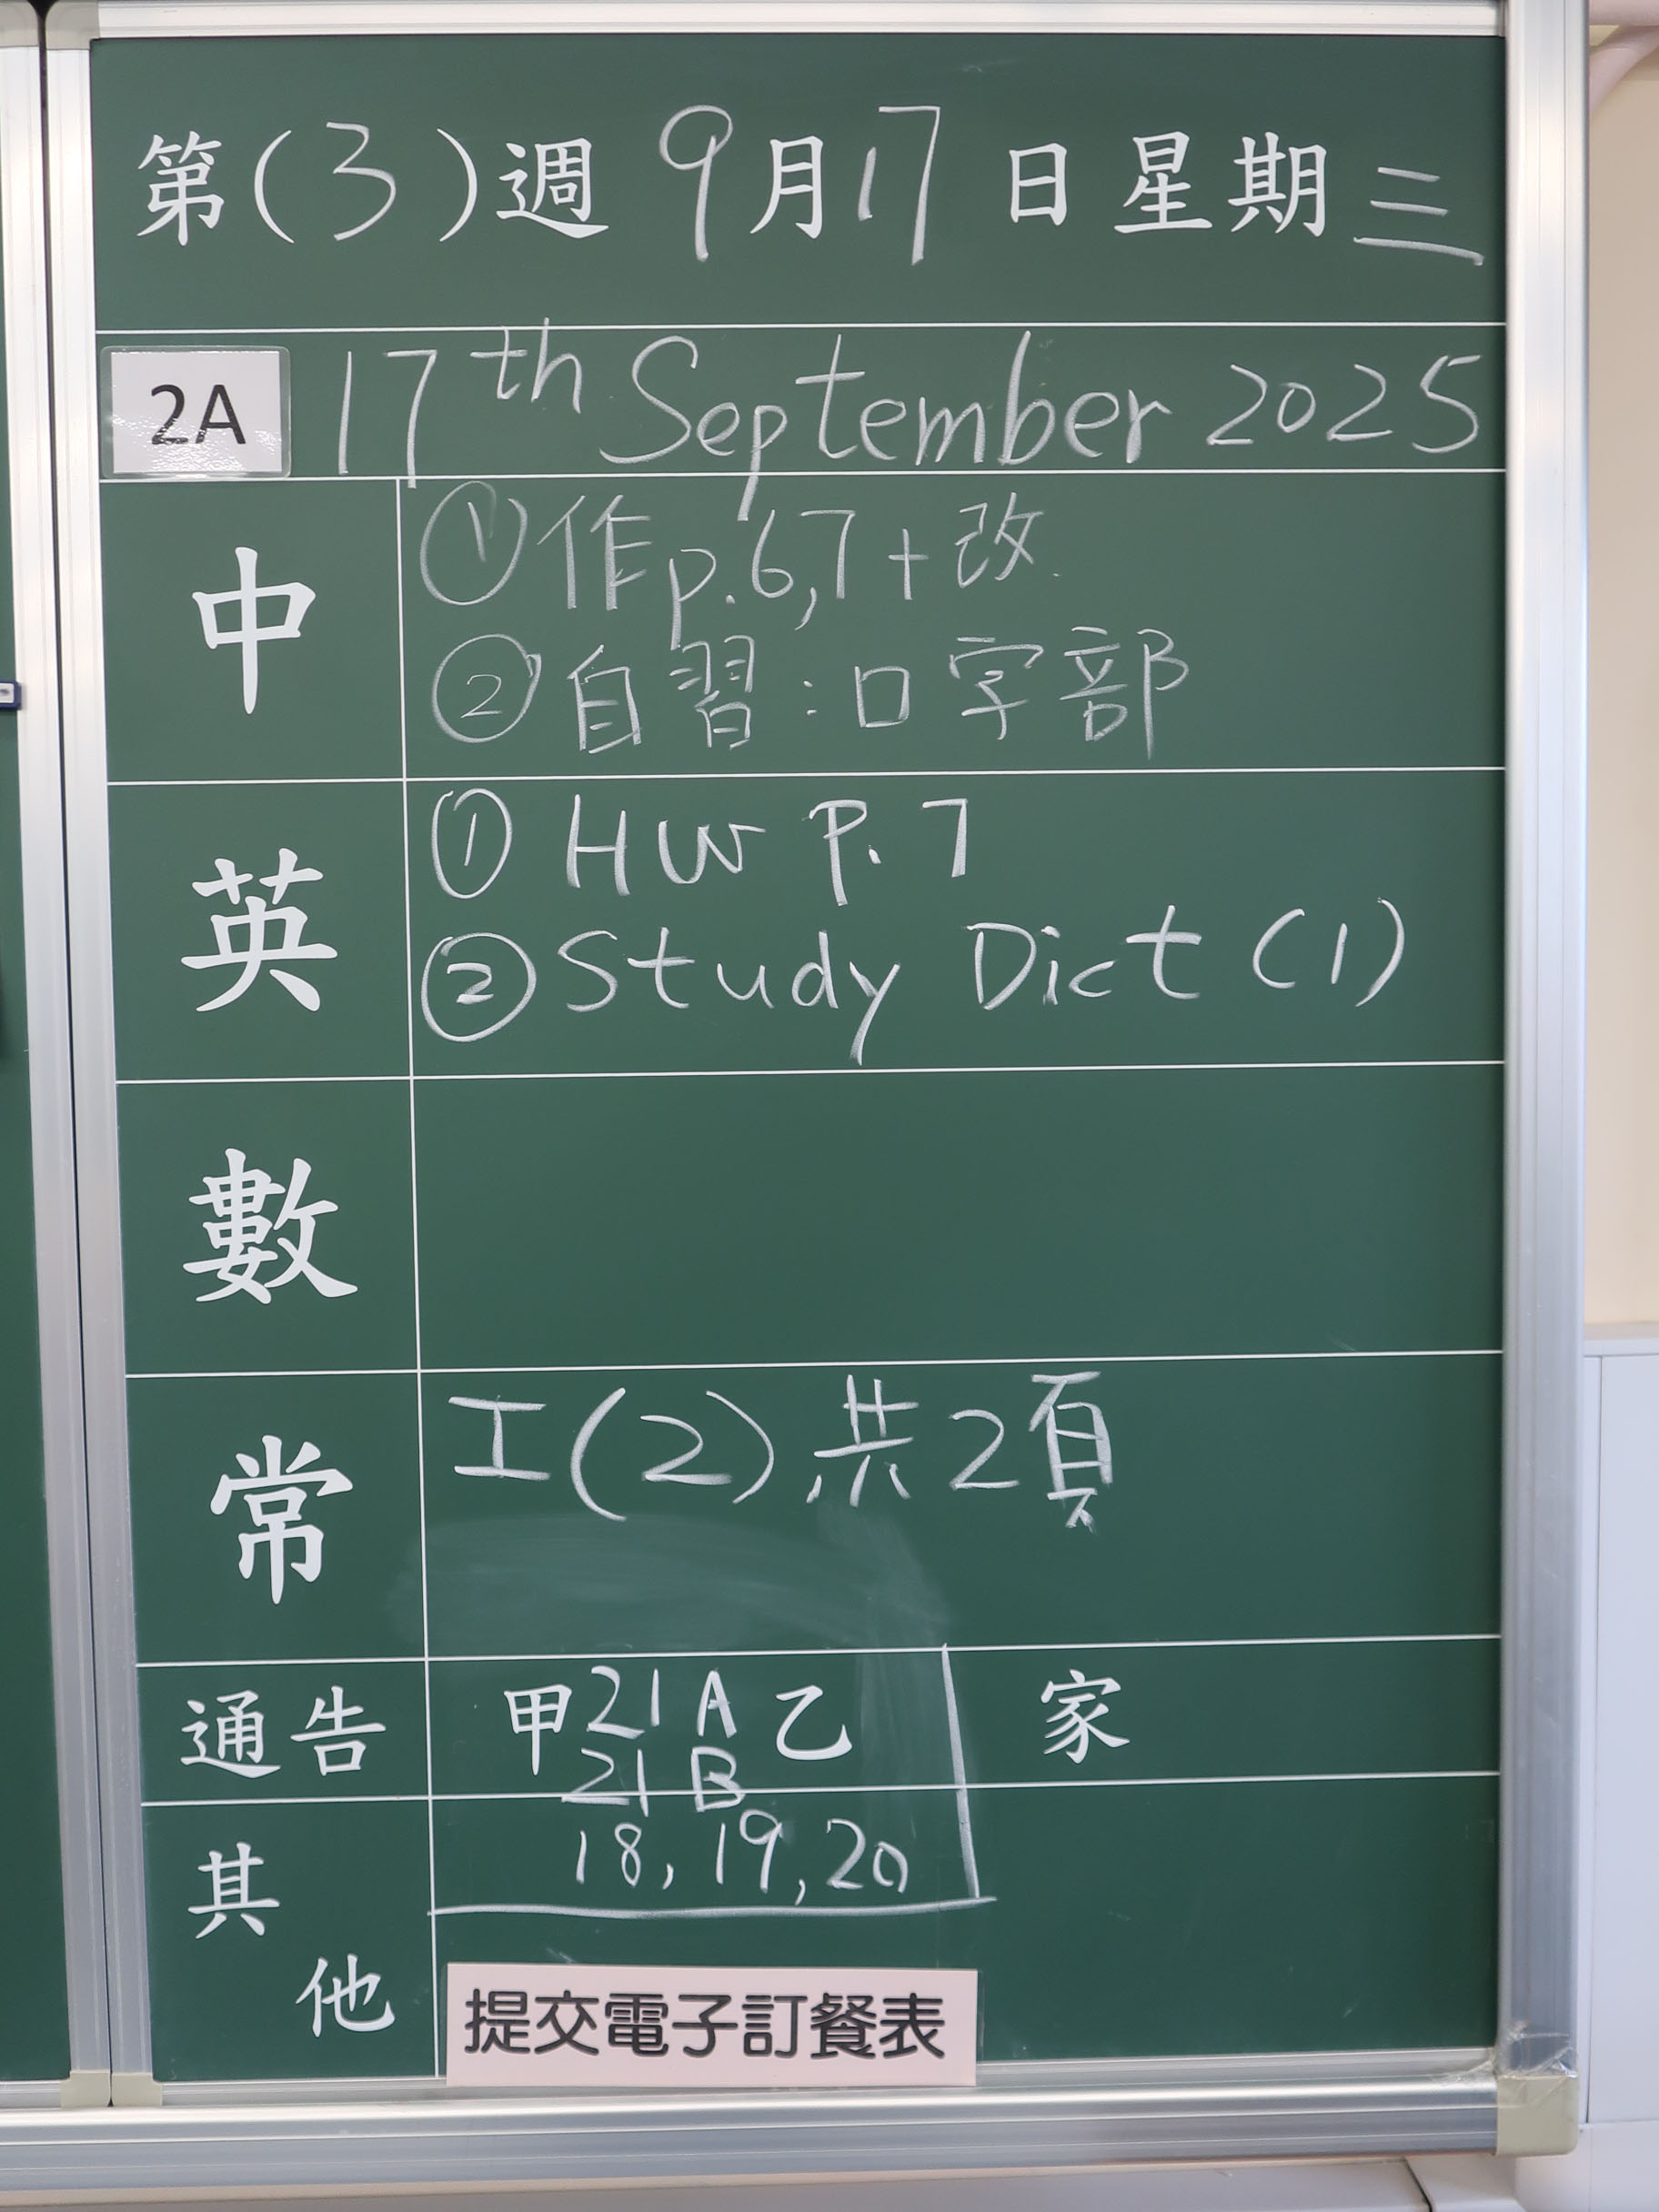 第(3)週 9月17日星期三
2A 17th September 2025
中
①作p.6,7+改
②自習:口字部
英
① HW P.7
② Study Dict (1)
數
常
工(2)共2頁
通告 甲 21A 乙 家
21B
18, 19, 20
其他
提交電子訂餐表